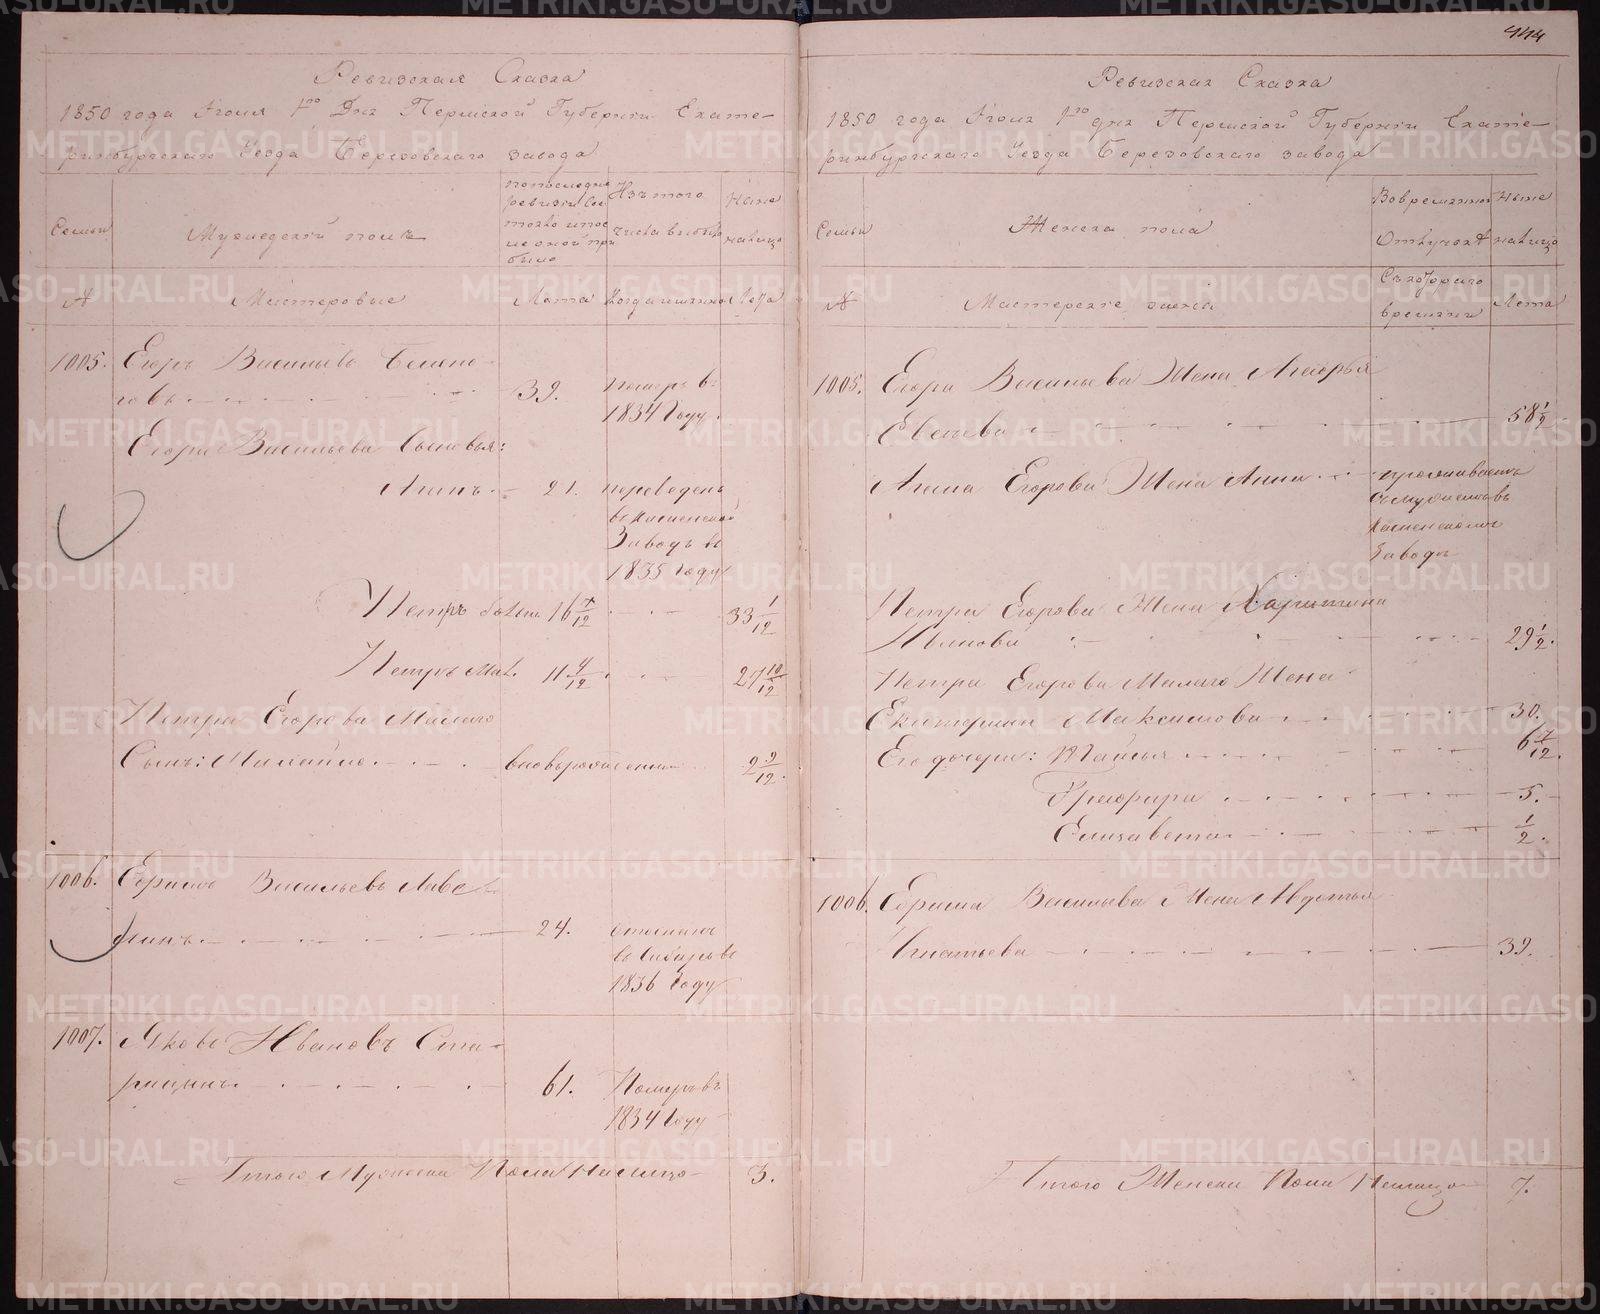 444
Ревизская Сказка
1850 года Июня 1го Дня Пермской Губернiи Екате-
ринбургскаго Уезда Березовскаго завода
Семьи
Мужескiй полъ
по последней ревизiи состояло и после оной прибыло
Изъ того числа выбыло
Ныне налицо
№
Мастеровые
Лета
Когда именно
Лета
1005. Егоръ Васильевъ
39. померъ въ
1834 Году.
Егора Васильева Сыновья:
21. переведенъ
въ Каменской
Заводъ въ
1835 Году
Петръ больш. 16 7/12 33 1/12
Петръ мал. 11 4/12 27 10/12
Петра Егорова Малаго
Сынъ: Михайло вновьрожденный 2 9/12.
1006. Ефимъ Васильевъ
24.
въ Сибирь въ
1836 Году
1007. Яковъ Ивановъ Ста-
рицынъ 61. Померъ въ
1834 Году
Итого Мужеска Пола Налицо 3.
Ревизская Сказка
1850 года Июня 1го дня Пермской Губернiи Екате-
ринбургскаго Уезда Березовскаго завода
Семьи
Женска пола
Во временной Отлучке
Ныне налицо
№
Мастерскiе жены
Съ котораго времени
Лета
1005. Егора Васильева Жена
58 1/2
Егорова Жена Анна проживаетъ
съ мужемъ въ
Каменскомъ
Заводе
Петра Егорова Жена Харитина
29 1/2.
Петра Егорова Малаго Жена
Екатерина Максимова 30.
Его дочери: 6 7/12.
5.
Елизавета 1/2.
1006. Ефима Васильева Жена Авдотья
Игнатьева 39.
Итого Женска Пола Налицо 7.
METRIKI.GASO-URAL.RU